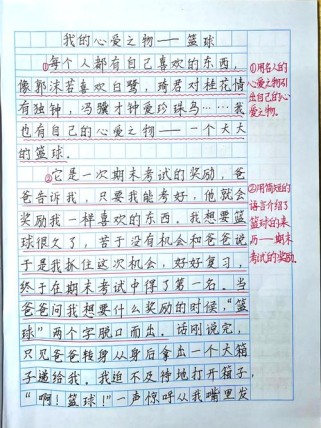 我的心爱之物——篮球
①每个人都有自己喜欢的东西，
像郭沫若喜欢白鹭，琦君对桂花情
有独钟，冯骥才钟爱珍珠鸟……我
也有自己的心爱之物——一个大大
的篮球。
②它是一次期末考试的奖励，爸
爸告诉我，只要我能考好，他就会
奖励我一样喜欢的东西，我想要篮
球很久了，苦于没有机会和爸爸说
于是我抓住这次机会，好好复习，
终于在期末考试中得了第一名。当
爸爸问我想要什么奖励的时候，“篮
球”两个字脱口而出。话刚说完，
只见爸爸转身从身后拿出一个大箱
子递给我。我迫不及待地打开箱子，
“啊！篮球！”一声惊呼从我嘴里发
①用名人的
心爱之物引
出自己的心
爱之物。
②用简短的
语言介绍了
篮球的来
历——期末
考试的奖励。